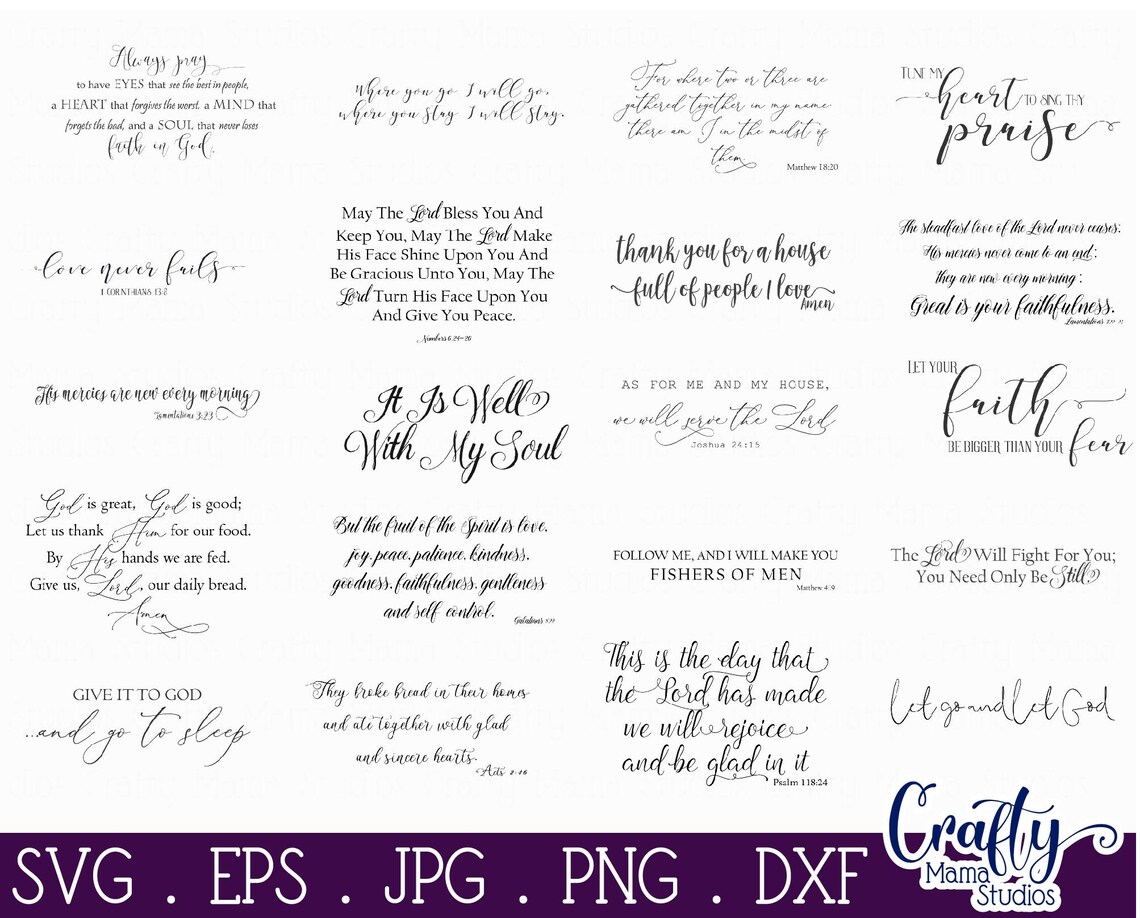 Always pray
to have EYES that see the best in people,
a HEART that forgives the worst, a MIND that
forgets the bad, and a SOUL that never loses
faith in God.
Where you go I will go,
where you stay I will stay.
For where two or three are
gathered together in my name
there am I in the midst of
them.
Matthew 18:20
TUNE MY
heart TO SING THY
praise
love never fails
1 CORINTHIANS 13:8
May The Lord Bless You And
Keep You, May The Lord Make
His Face Shine Upon You And
Be Gracious Unto You, May The
Lord Turn His Face Upon You
And Give You Peace.
Numbers 6:24-26
thank you for a house
full of people I love
Amen
The steadfast love of the Lord never ceases;
His mercies never come to an end;
They are new every morning;
Great is your faithfulness.
Lamentations
His mercies are new every morning
Lamentations 3:23
It Is Well
With My Soul
AS FOR ME AND MY HOUSE,
we will serve the Lord
Joshua 24:15
LET YOUR
faith
BE BIGGER THAN YOUR fear
God is great, God is good;
Let us thank Him for our food.
By His hands we are fed.
Give us, Lord, our daily bread.
Amen
But the fruit of the Spirit is love,
joy, peace, patience, kindness,
goodness, faithfulness, gentleness
and self control.
Galatians
FOLLOW ME, AND I WILL MAKE YOU
FISHERS OF MEN
Matthew 4:19
The Lord Will Fight For You;
You Need Only Be Still
GIVE IT TO GOD
...and go to sleep
They broke bread in their homes
and ate together with glad
and sincere hearts.
Acts 2:46
This is the day that
the Lord has made
we will rejoice
and be glad in it
Psalm 118:24
let go and let God
SVG . EPS . JPG . PNG . DXF
Crafty
Mama
Studios